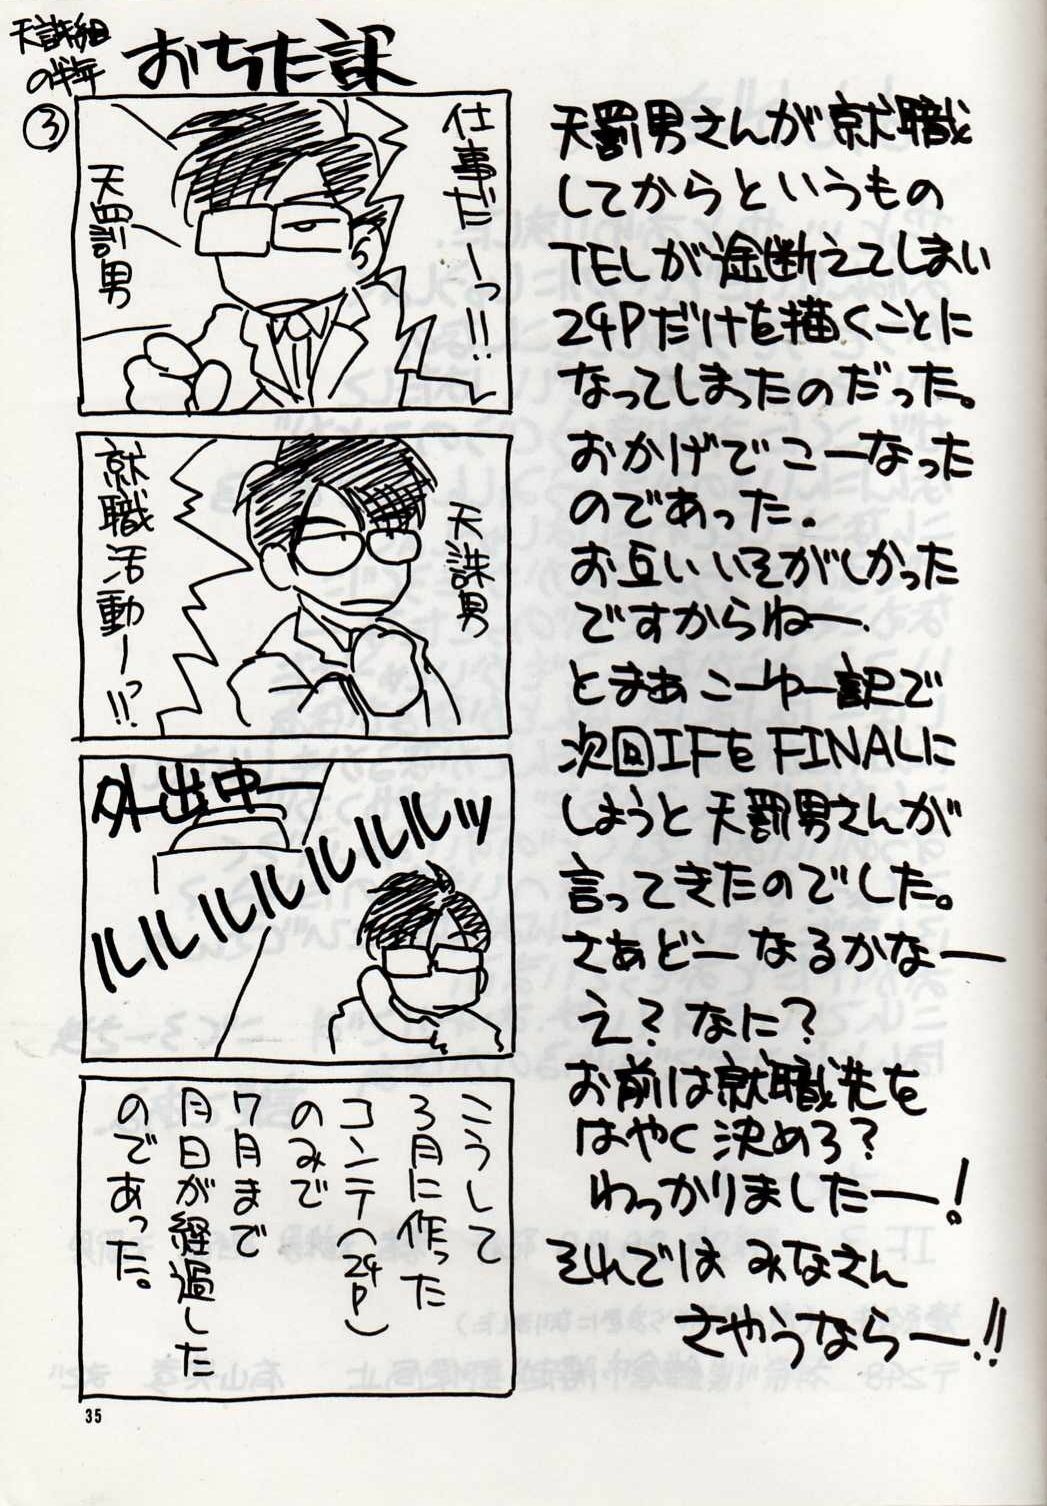 天誅組
の半年
おちた記
③
仕事だーっ!!
天罰男
天誅男
就職活動ーっ!!
外出中ー
ルルルルルルルルッ
こうして
3月に作った
コンテ(24P)
のみで
7月まで
月日が経過した
のであった。
天罰男さんが就職
してからというもの
TELが途断えてしまい
24Pだけを描くことに
なってしまったのだった。
おかげでこーなった
のであった.
お互いいそがしかった
ですからねー.
とまあこーゆー訳で
次回IFをFINALに
しようと天罰男さんが
言ってきたのでした。
さあどーなるかなー
え?なに?
お前は就職先を
はやく決めろ?
わっかりましたー!
それではみなさん
さやうならー!!
35